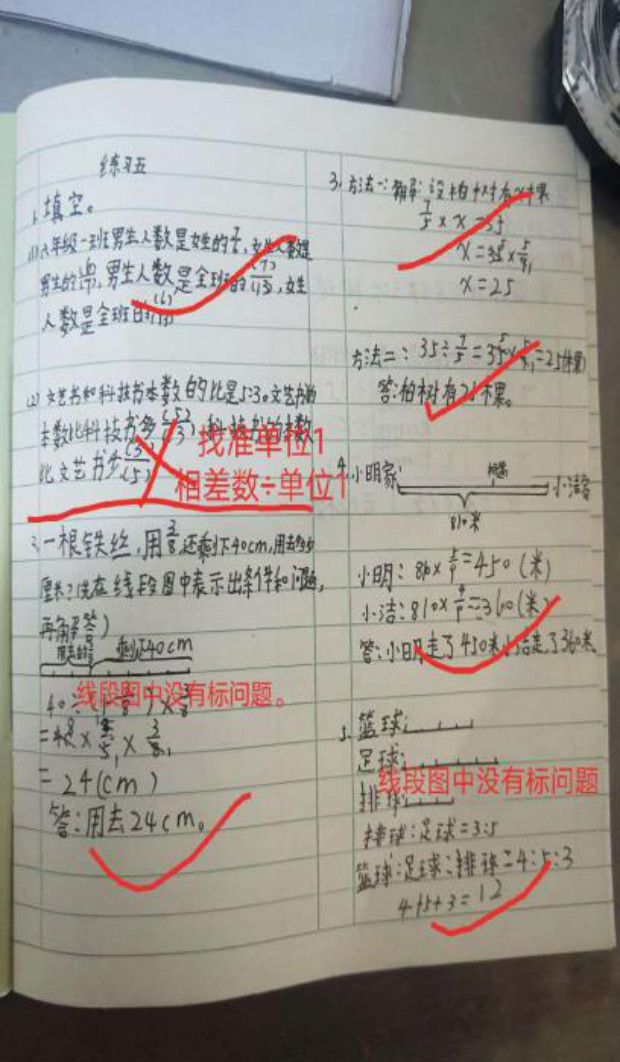 练习五
1、填空。
(1)六年级一班男生人数是女生的
男生的 男生人数是全班的(7)/(13),女生
人数是全班的(6)/(13)
(2)文艺书和科技书本数的比是5:3。文艺书的
本数比科技书多(5)/(3),科技书的本数
比文艺书少(3)/(5)
找准单位1
相差数÷单位1
一根铁丝,用3/8,还剩下40cm,用去多少
厘米?(先在线段图中表示出条件和问题,
再解答)
剩下40cm
线段图中没有标问题。
=24(cm)
答:用去24cm。
3、方法一:解:设柏树有x棵
7/5×x=35
x=35×5/7
x=25
方法二:35÷7/5=35×5/7=25(棵)
答:柏树有25棵。
4、小明家 相遇 小洁家
810米
小明:810×5/9=450(米)
小洁:810×4/9=360(米)
答:小明走了450米,小洁走了360米
5、篮球:
足球:
线段图中没有标问题
排球:
排球:足球=3:5
篮球:足球:排球=4:5:3
4+5+3=12